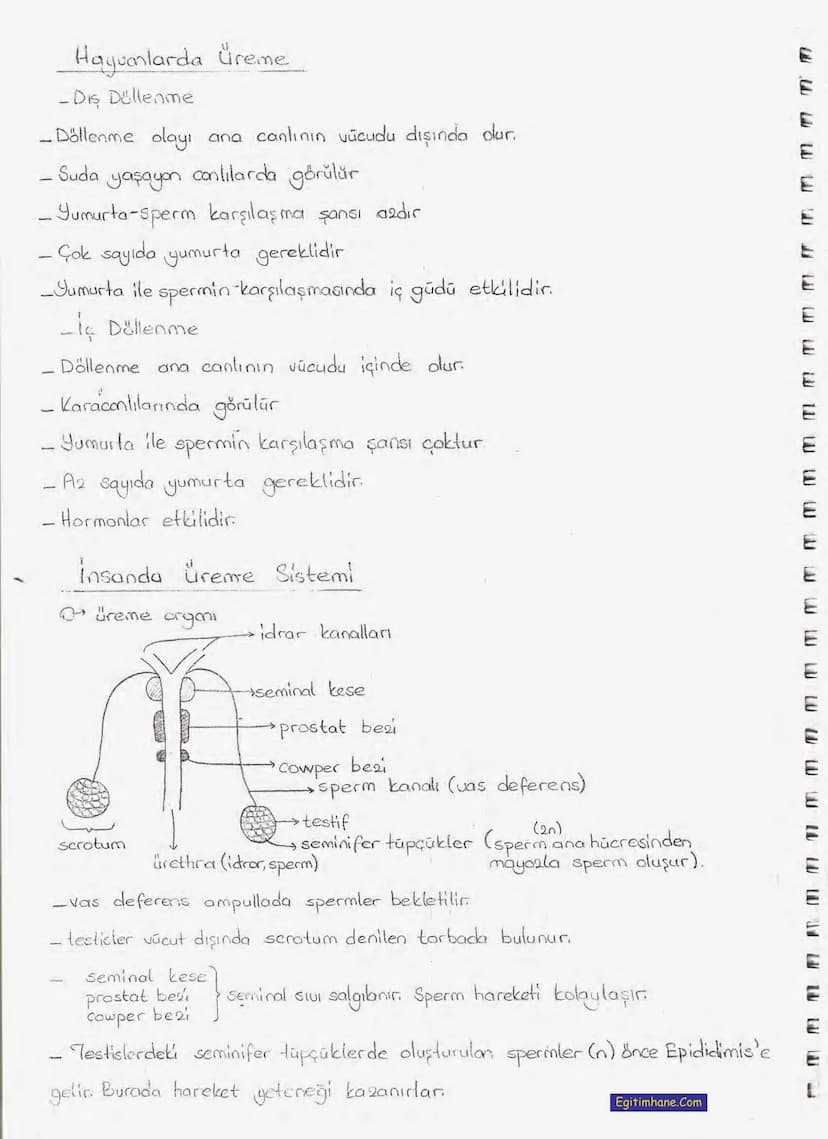 Hayvanlarda Üreme
- Dış Döllenme
- Döllenme olayı ana canlının vücudu dışında olur.
- Suda yaşayan canlılarda görülür
- Yumurta-sperm karşılaşma şansı azdır
- Çok sayıda yumurta gereklidir
- Yumurta ile spermin karşılaşmasında iç güdü etkilidir.
- İç Döllenme
- Döllenme ana canlının vücudu içinde olur.
- Kara canlılarında görülür
- Yumurta ile spermin karşılaşma şansı çoktur
- Az sayıda yumurta gereklidir.
- Hormonlar etkilidir.
İnsanda Üreme Sistemi
→ üreme organı
idrar kanalları
seminal kese
prostat bezi
cowper bezi
sperm kanalı (vas deferens)
testif
(2n)
seminifer tüpçükler (sperm ana hücresinden
mayozla sperm oluşur).
scrotum
ürethra (idrar, sperm)
- Vas deferens ampullada spermler bekletilir.
- testicler vücut dışında scrotum denilen torbada bulunur.
- seminal kese
prostat bezi
cowper bezi
} seminal sıvı salgılanır. Sperm hareketi kolaylaşır.
- Testislerdeki seminifer tüpçüklerde oluşturulan spermler (n) önce Epididimis'e
gelir. Burada hareket yeteneği kazanırlar.
Egitimhane.Com